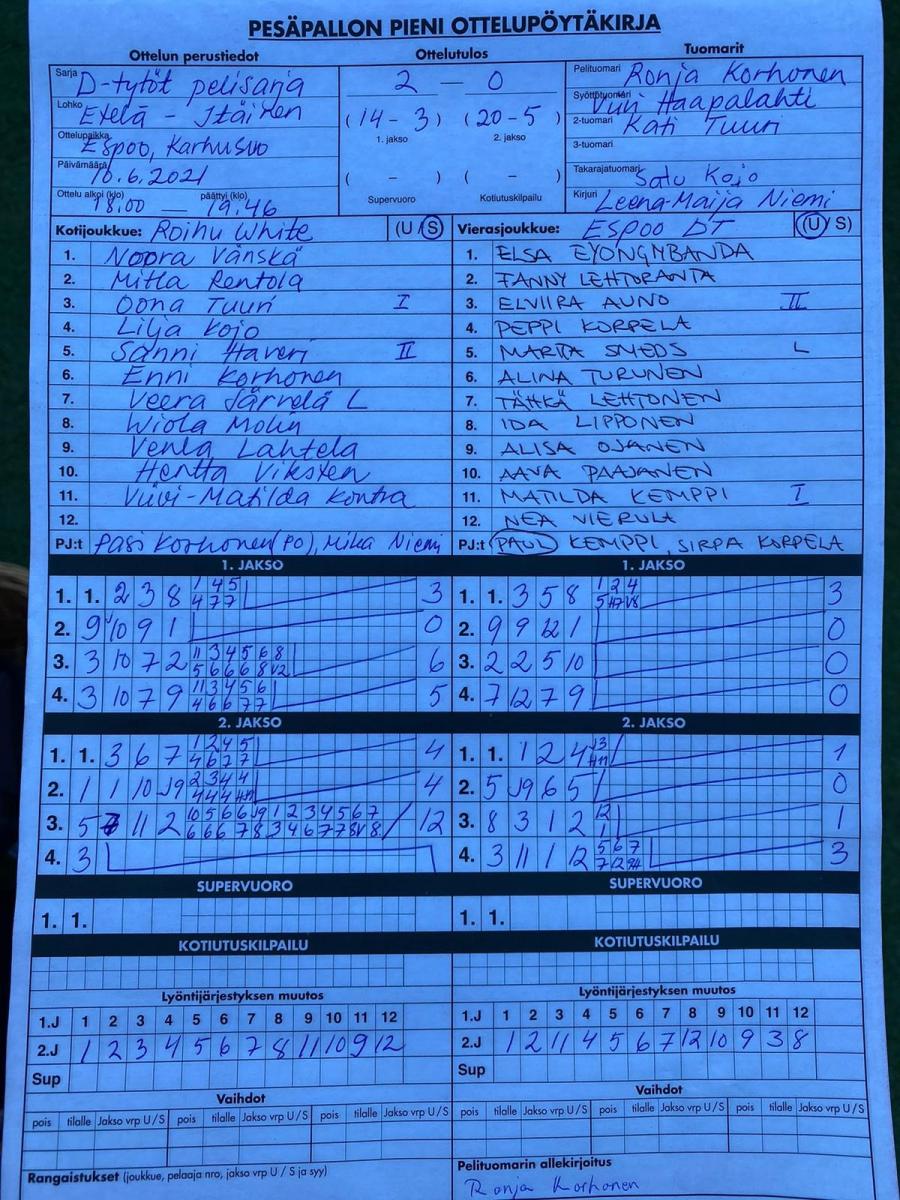 PESÄPALLON PIENI OTTELUPÖYTÄKIRJA
Ottelun perustiedot
Ottelutulos
Tuomarit
Sarja D-tytöt pelisarja
Lohko Etelä - Itäinen
Ottelupaikka Espoo, Karhusuo
Päivämäärä 10.6.2021
Ottelu alkoi (klo) päättyi (klo)
18.00 — 19.46
2 — 0
(14 - 3) (20 - 5)
1. jakso 2. jakso
( - ) ( - )
Supervuoro Kotiutuskilpailu
Pelituomari Ronja Korhonen
Syöttötuomari Haapalahti
2-tuomari Kati Tuuri
3-tuomari
Takarajatuomari Satu Kojo
Kirjuri Leena-Maija Niemi
Kotijoukkue: Roihu White (U S)
1. Noora Vänskä
2. Mitla Rentola
3. Oona Tuuri I
4. Lilja Kojo
5. Sanni Haveri II
6. Enni Korhonen
7. Veera Järvelä L
8. Wiola Molin
9. Venla Lahtela
10. Hentta Viksten
11. Viivi-Matilda Kontra
12.
PJ:t Pasi Korhonen (PO), Mika Niemi
Vierasjoukkue: Espoo DT (U S)
1. ELSA EYONGMBANDA
2. FANNY LEHTORANTA
3. ELVIIRA AUNO II
4. PEPPI KORPELA
5. MARTA SMEDS L
6. ALINA TURUNEN
7. TÄHKÄ LEHTONEN
8. IDA LIPPONEN
9. ALISA OJANEN
10. AAVA PAAJANEN
11. MATILDA KEMPPI I
12. NEA VIERULA
PJ:t PAULI KEMPPI, SIRPA KORPELA
1. JAKSO
1. 1. 2 3 8 1 4 5 3
4 7 7
2. 9 10 9 1 0
3. 3 10 7 2 11 3 4 5 6 8 6
5 6 6 6 8 12
4. 3 10 7 9 11 3 4 5 6 5
4 6 6 7 7
1. JAKSO
1. 1. 3 5 8 1 2 4 3
2. 9 9 12 1 0
3. 2 2 5 10 0
4. 7 12 7 9 0
2. JAKSO
1. 1. 3 6 7 1 2 4 5 4
4 6 7 7
2. 1 1 10 9 2 3 4 4 4
3. 5 11 2 10 5 6 6 9 1 2 3 4 5 6 7 12
6 6 6 7 8 3 4 6 7 7 8
4. 3
2. JAKSO
1. 1. 1 2 4 1
2. 5 9 6 5 0
3. 8 3 1 2 12 1
1
4. 3 11 1 12 5 6 7 3
SUPERVUORO
1. 1.
SUPERVUORO
1. 1.
KOTIUTUSKILPAILU
KOTIUTUSKILPAILU
Lyöntijärjestyksen muutos
1.J 1 2 3 4 5 6 7 8 9 10 11 12
2.J 1 2 3 4 5 6 7 8 11 10 9 12
Sup
Lyöntijärjestyksen muutos
1.J 1 2 3 4 5 6 7 8 9 10 11 12
2.J 1 2 11 4 5 6 7 12 10 9 3 8
Sup
Vaihdot
pois tilalle Jakso vrp U/S pois tilalle Jakso vrp U/S pois tilalle Jakso vrp U/S
Vaihdot
pois tilalle Jakso vrp U/S pois tilalle Jakso vrp U/S pois tilalle Jakso vrp U/S
Rangaistukset (joukkue, pelaaja nro, jakso vrp U / S ja syy)
Pelituomarin allekirjoitus
Ronja Korhonen